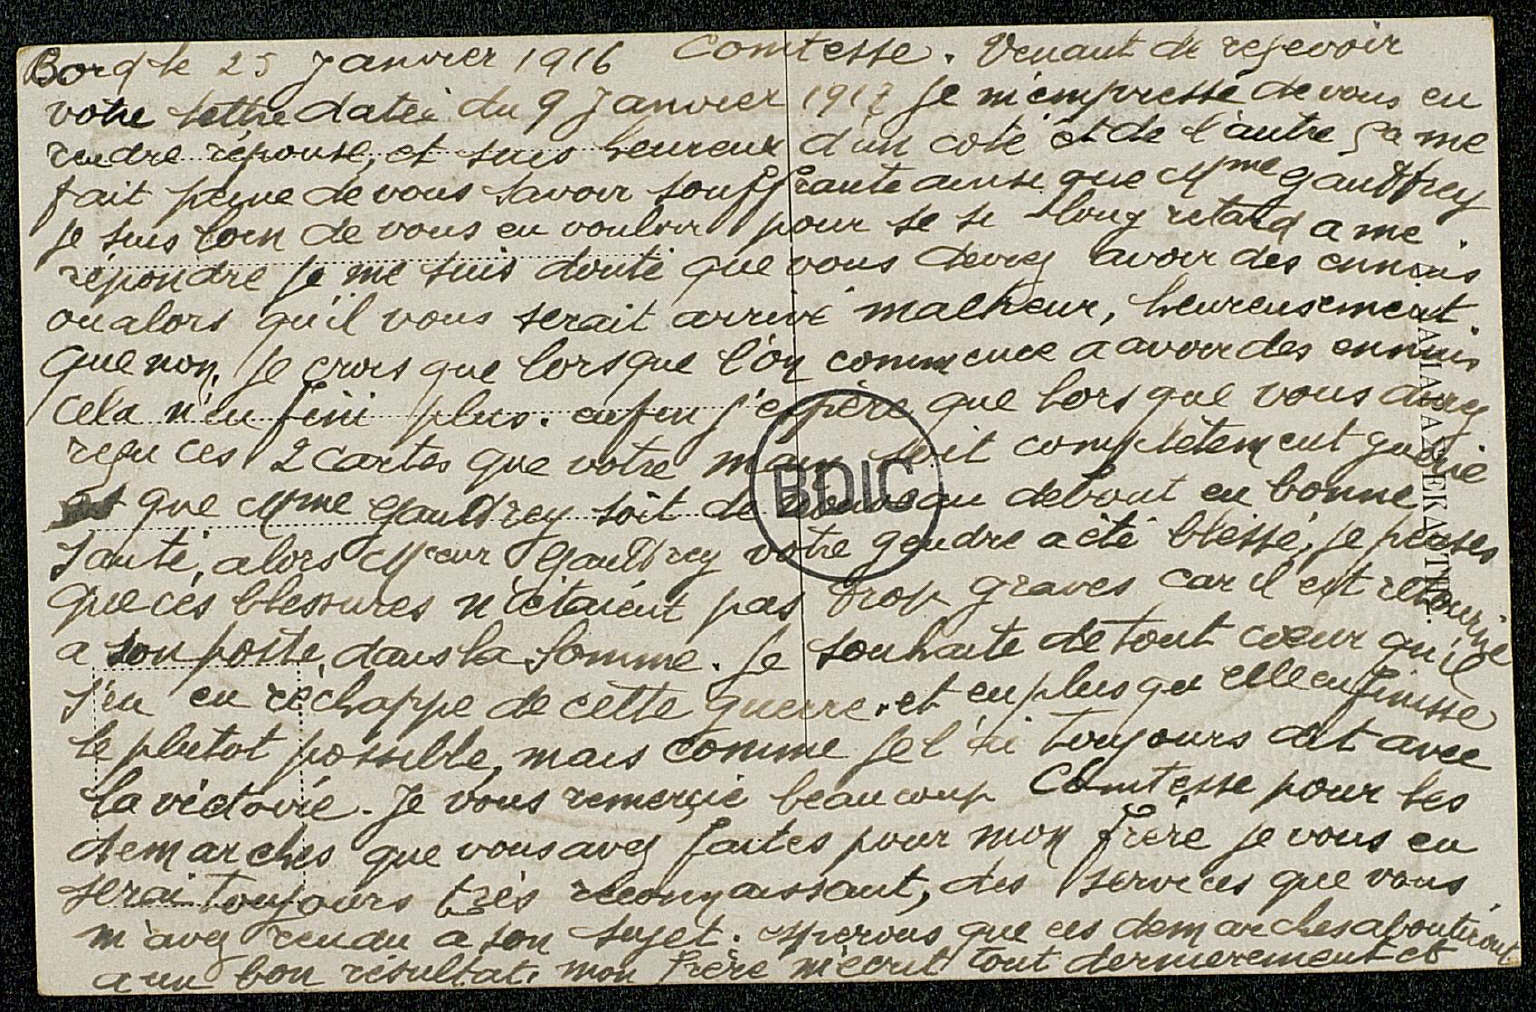 Bord le 25 Janvier 1916 Comtesse. Venant de reçevoir
votre lettre datéé du 9 Janvier 1917 je m'empresse de vous en
rendre réponse, et suis heureux d'un coté et de l'autre ça me
fait peine de vous savoir souffrante ainsi que Mme Gauffrey
je suis loin de vous en vouloir pour se si long retard a me
répondre je me suis douté que vous deviez avoir des ennuis
ou alors qu'il vous serait arrivé malheur, heureusement
que non. Je crois que lorsque l'on commence a avoir des ennuis
cela n'en fini plus. enfin j'espère que lors que vous aurez
reçu ces 2 cartes que votre main soit complètement guérie
et que Mme Gauffrey soit de nouveau debout en bonne
santé, alors Mceur Gauffrey votre gendre a été blessé, je penses
que cés blessures n'étaient pas trop graves car il est retourné
a son poste, dans la Somme. Je souhaite de tout cœur qu'il
s'en en réchappe de cette guerre. et en plus qu'elle en finisse
le plutot possible, mais comme je l'ai toujours dit avec
la victoire. Je vous remerçie beaucoup Comtesse pour les
demarches que vous avez faites pour mon frère je vous en
serai toujours très reconnaissant, des services que vous
m'avez rendu a son sujet. esperons que ces demarches aboutiront
a un bon résultat. mon frère m'écrit tout dernierement et
BDIC